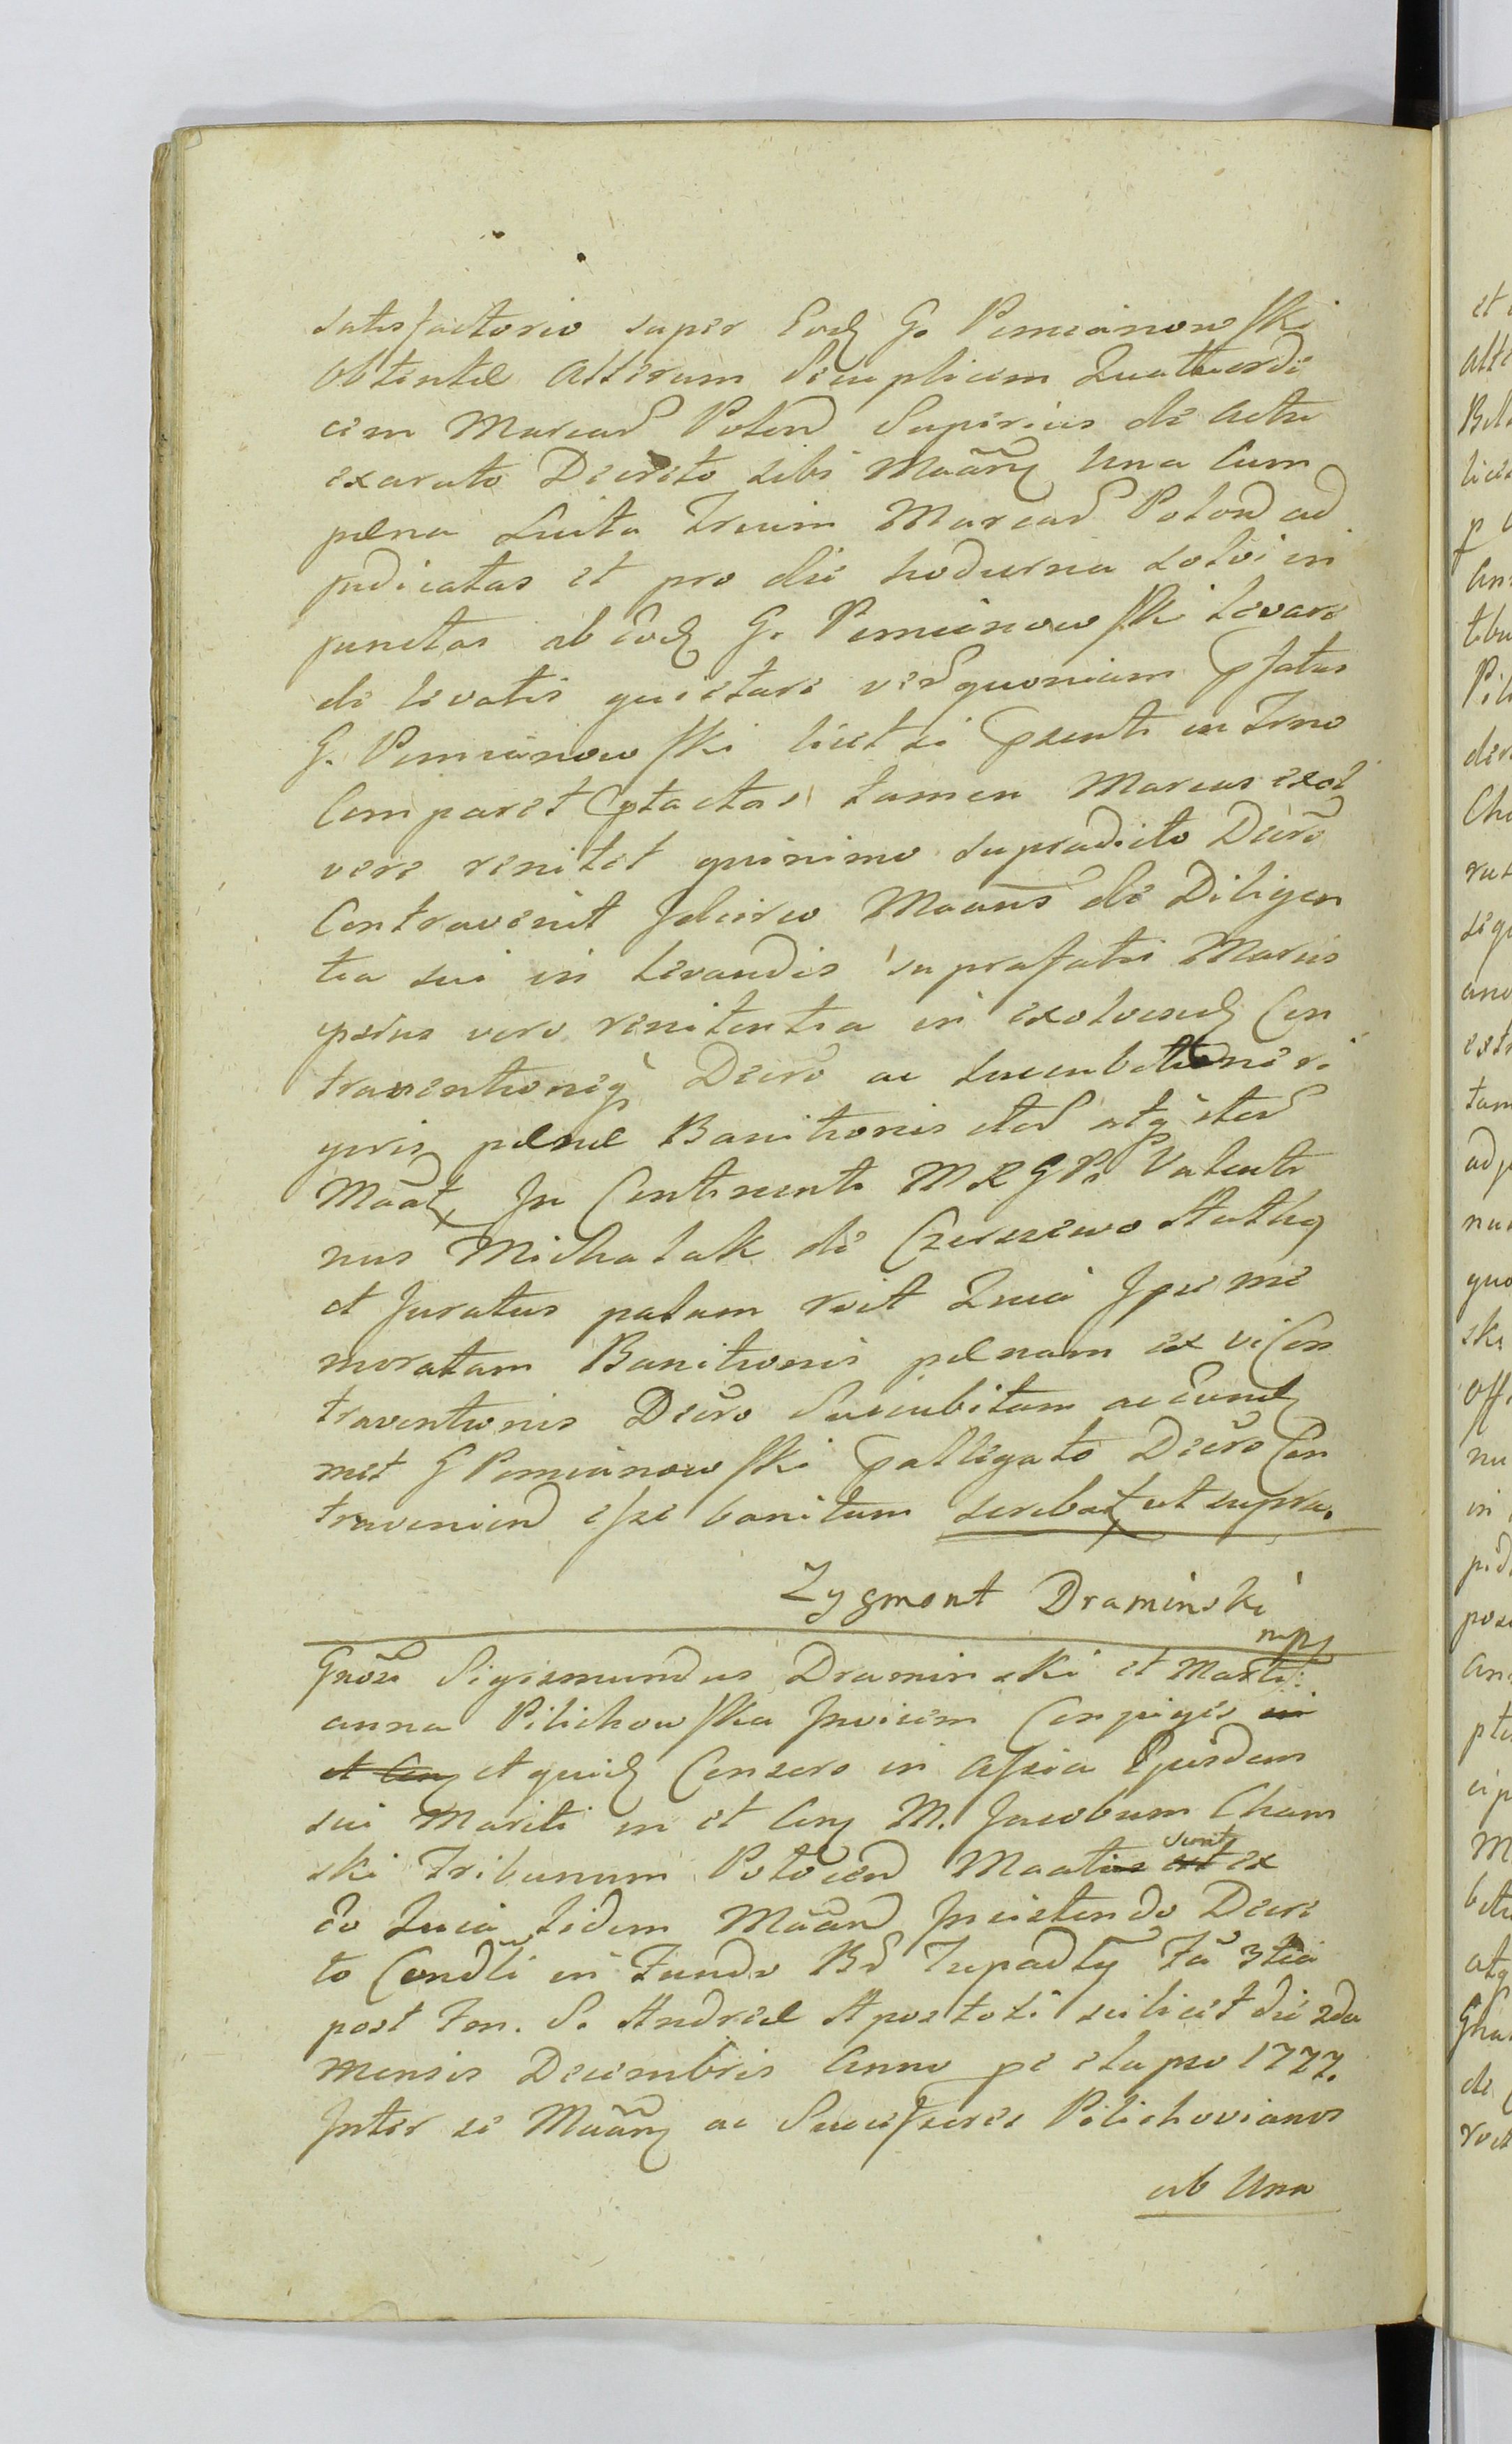 satisfactorio super Eod G. Pomianowski
obtentæ alterum Simplicem Quatuorde
cim Marcas Polon Superius de actu
exarato Decreto sibi Mãarz una Cum
pæna Luita Trium Marcas Polon ad
judicatas et pro die hodierna solvi in
junctas ab Eod G. Pomianowski levare
de levatis quietare veñ quoniam pfatus
G. Pomianowski licet si pzenti in Trno
Comparet ptactas tamen Marcas exol
vere renitet quinimo supradicto Decro
Contravenit Idcirco Maans de Diligen
tia sui in levandis suprafatis Marcis
ipsius vero renitentia in exolvend Con
traventioneq Decro ac succubitione ri
guris pænæ Banitionis
Mãat In Continenti M R G Ps Valenti
nus Michalak de Czerszewo
et Juratus palam roit Quia Ipse me
moratam Banitionis pænam ex vi Con
traventionis Decro Succubitam ac Eund
met G Pomianowski pallegato Decro Con
travenien esse banitum scribat ut supra.
Zygmont Draminski
mp
Gnõsi Sigismundus Draminski et Mari
anna Pilichowska Invicem Conjuges in
et Con et quid Consors in assia Ejusdem
sui Mariti in et Con M. Jacobum Cham
ski Tribunum Polocen Maati sunt ex
eo Quia Iidem Mãan Insistendo Decre
to Condli in Fundo Bõ Tupadly Fã 3tia
post Fen. S. Andreæ Apostoli scilicet die 2da
mensis Decembris Anno pe elapso 1777.
Inter se Mãarz ac Successores Pilichovianos
ab Una